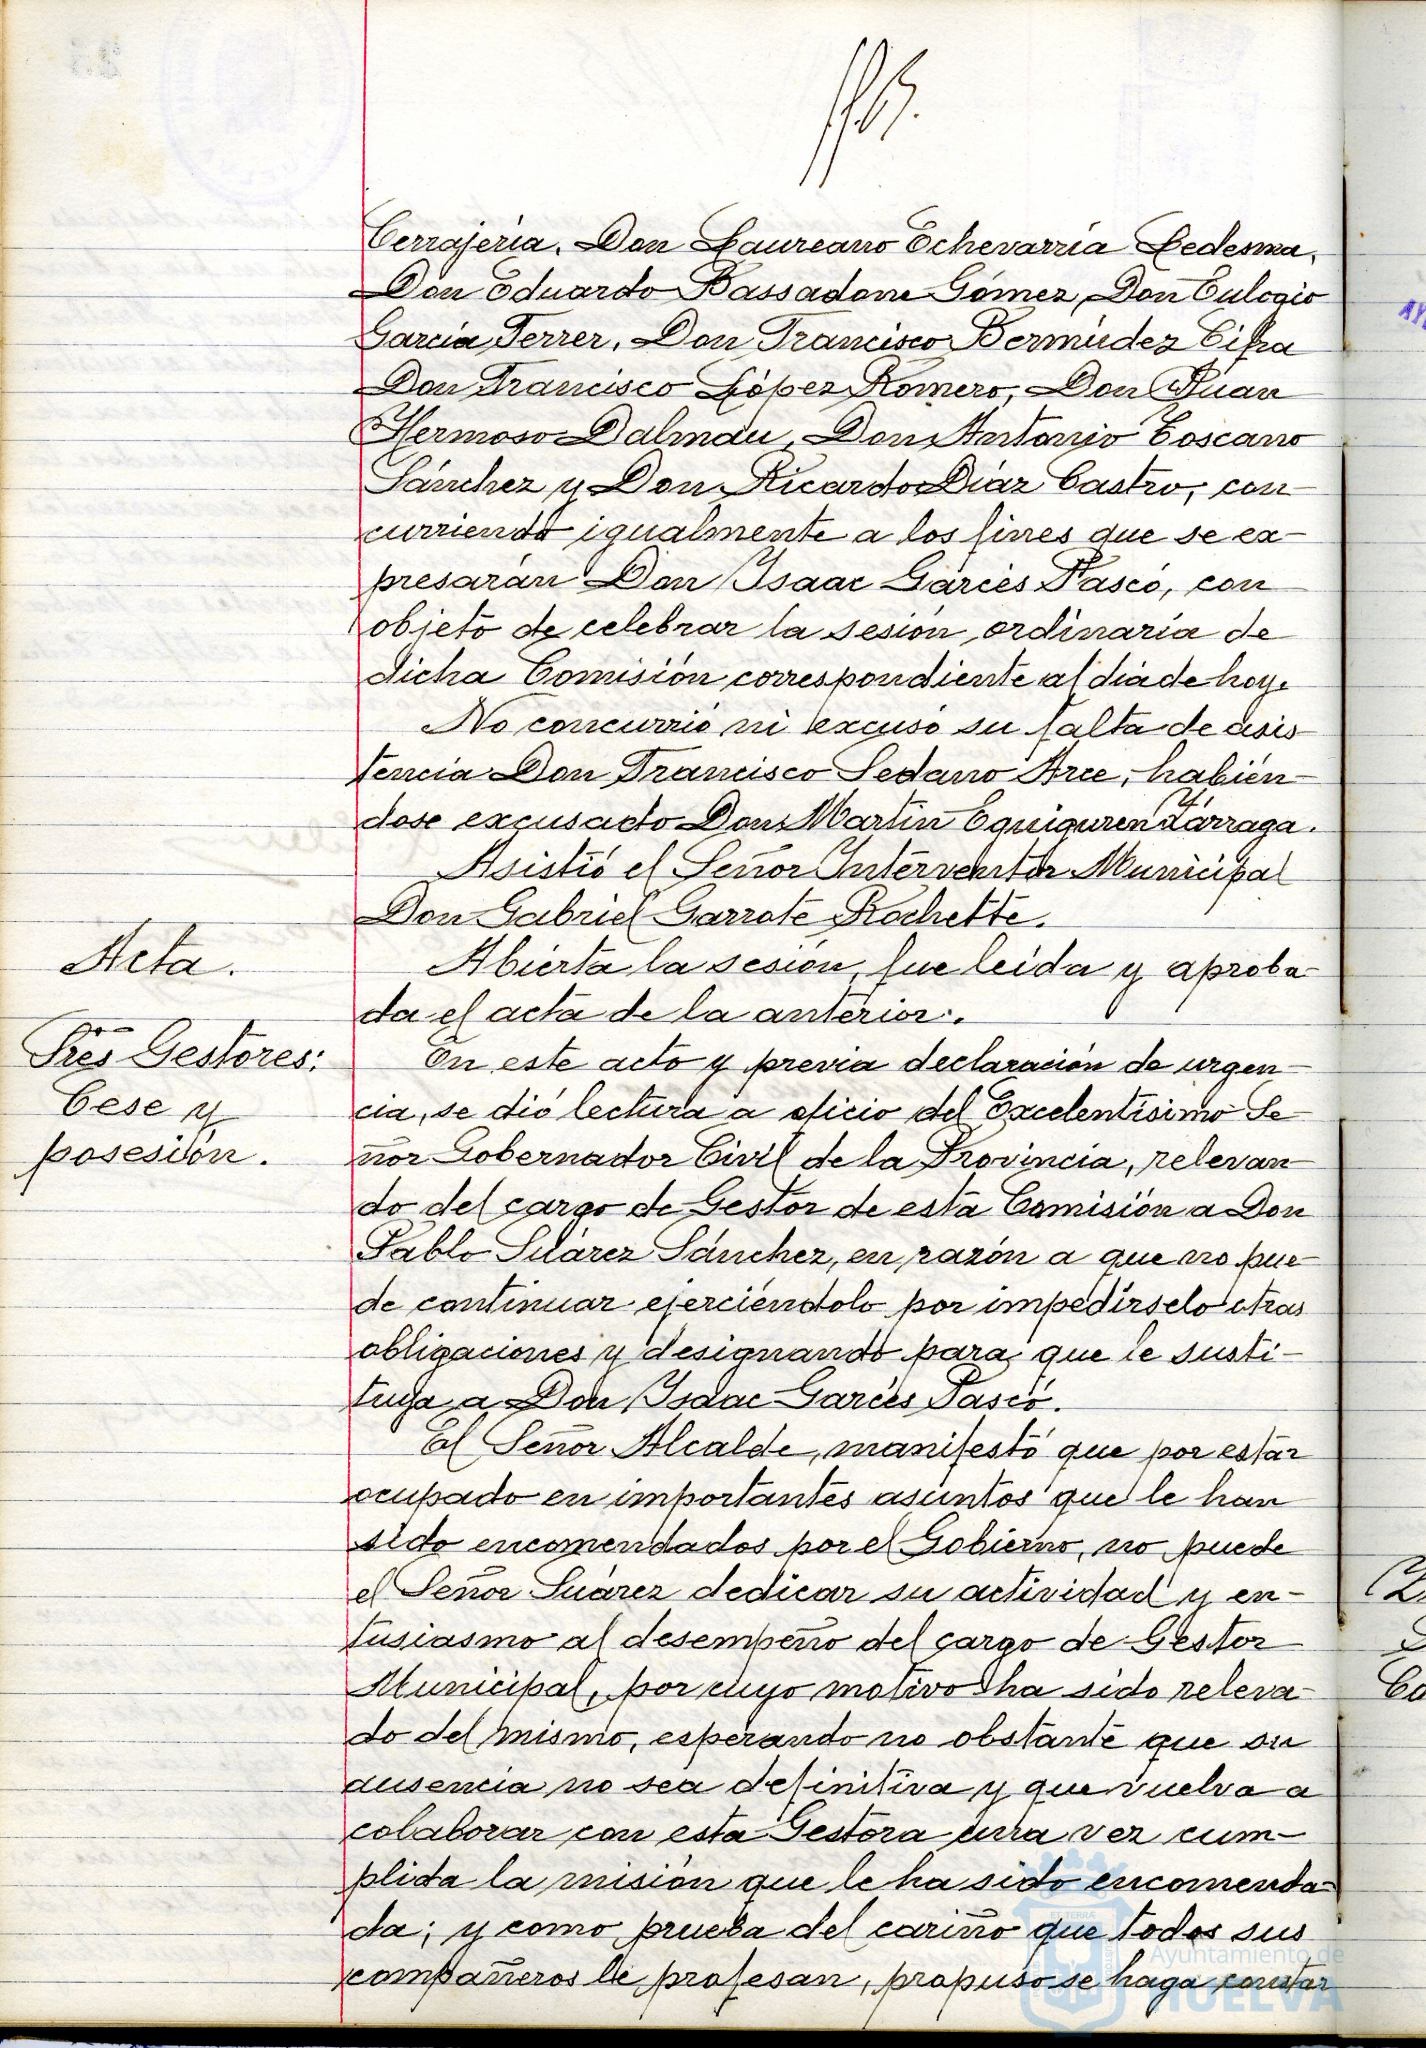 Cerrajería, Don Laureano Echevarría Ledesma,
Don Eduardo Bassadone Gómez, Don Eulogio
García Ferrer, Don Francisco Bermúdez Cifra
Don Francisco López Romero, Don Juan
Hermoso Dalmau, Don Antonio Toscano
Sánchez y Don Ricardo Díaz Castro, con-
curriendo igualmente a los fines que se ex-
presarán Don Isaac Garcés Pascó, con
objeto de celebrar la sesión ordinaria de
dicha Comisión correspondiente al día de hoy.
No concurrió ni excusó su falta de asis-
tencia Don Francisco Sedano Arce, habién-
dose excusado Don Martín Eguiguren Yzárraga.
Asistió el Señor Interventor Municipal
Don Gabriel Garrote Rochette.
Acta.
Abierta la sesión, fue leída y aproba-
da el acta de la anterior.
Tres Gestores:
Cese y
posesión.
En este acto y previa declaración de urgen-
cia, se dió lectura a oficio del Excelentísimo Se-
ñor Gobernador Civil de la Provincia, relevan-
do del cargo de Gestor de esta Comisión a Don
Pablo Suárez Sánchez, en razón a que no pue-
de continuar ejerciéndolo por impedírselo otras
obligaciones y designando para que le susti-
tuya a Don Isaac Garcés Pascó.
El Señor Alcalde, manifestó que por estar
ocupado en importantes asuntos que le han
sido encomendados por el Gobierno, no puede
el Señor Suárez dedicar su actividad y en-
tusiasmo al desempeño del cargo de Gestor
Municipal, por cuyo motivo ha sido releva-
do del mismo, esperando no obstante que su
ausencia no sea definitiva y que vuelva a
colaborar con esta Gestora una vez cum-
plida la misión que le ha sido encomenda-
da; y como prueba del cariño que todos sus
compañeros le profesan, propuso se haga constar
Ayuntamiento de
HUELVA